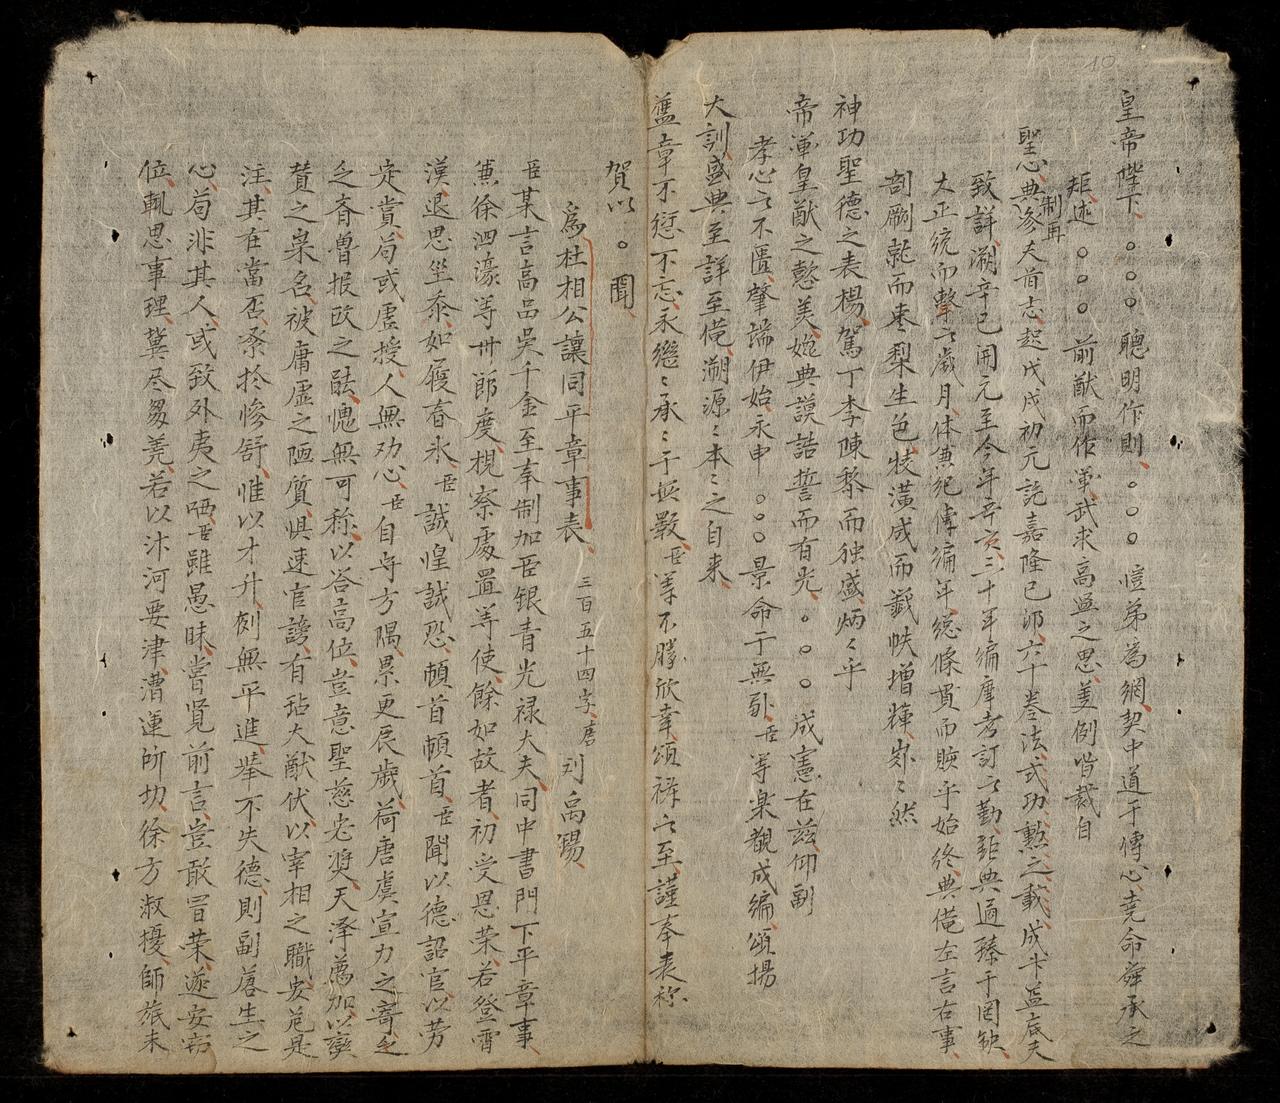 皇帝陛下。。。聰明作則。。。愷弟為綱契中道于傳心堯命舜承之
矩述。。。前猷而作率武求高益之思義例皆裁自
制再
聖心典參夫首志起戊戌初元訖嘉隆已卯六十卷法式功勲之載成卡益底天
致詳溯辛已開元至今年辛亥三十年編摩考訂之勤鉅典遹臻于罔缺
大正統而繫之歲月体兼紀傳編年總條貫而賅乎始終典俻左言右事
剞劂就而枣梨生色裝潢成而籤帙增輝粲〻然
神功聖德之表楊駕丁李陳黎而独盛炳〻乎
帝運皇猷之懿美媲典謨誥誓而有光。。。成憲在兹仰副
孝心之不匱肇端伊始永申。。。景命于無疆臣等楽覩成編頌揚
大訓盛典至詳至俻溯源〻本〻之自來
舊章不愆不忘永繼〻承〻于無斁臣等不勝欣幸頌禱之至謹奉表称
賀以。聞
為杜相公讓同平章事表 三百五十四字唐 刘禹錫
臣某言高品吳千金至奉制加臣银青光禄大夫同中書門下平章事
兼徐泗濠等卅節度梘察處置等使餘如故者初受恩荣若登霄
漢退思坐忝如履春氷臣誠惶誠恐頓首頓首臣聞以德詔官以劳
定賞苟或虚授人無劝心臣自守方隅累更辰歲荷唐虞宣力之寄乏
乏斉魯报政之能愧無可称以答高位豈意聖慈忽奬天泽薦加以孿
賛之枭名被庸虚之陋質惧速官謗有玷大猷伏以宰相之職安危是
注其在當否系扵惨舒惟以才升例無平進举不失德則副蒼生之
心苟非其人或致外夷之哂臣雖愚昧嘗覧前言豈敢冒荣遂安窃
位輒思事理冀尽芻蕘若以汴河要津漕運所切徐方淑擾師旅未